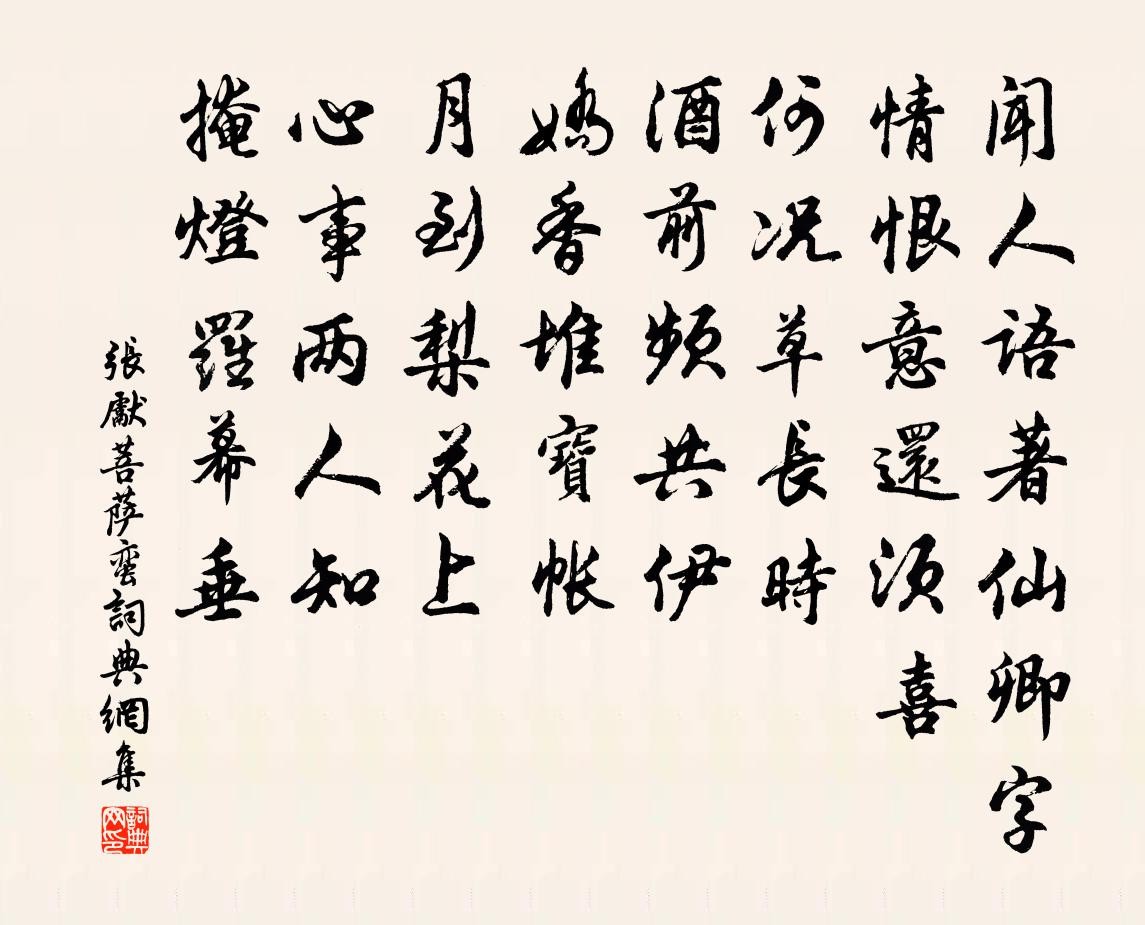 聞人語著仙卿字
情恨意還須喜
何況草長時
酒前頻共伊
嬌香堆寶帳
月到梨花上
心事两人知
掩燈羅幕垂
張獻菩薩蛮詞典網集
詞典网印